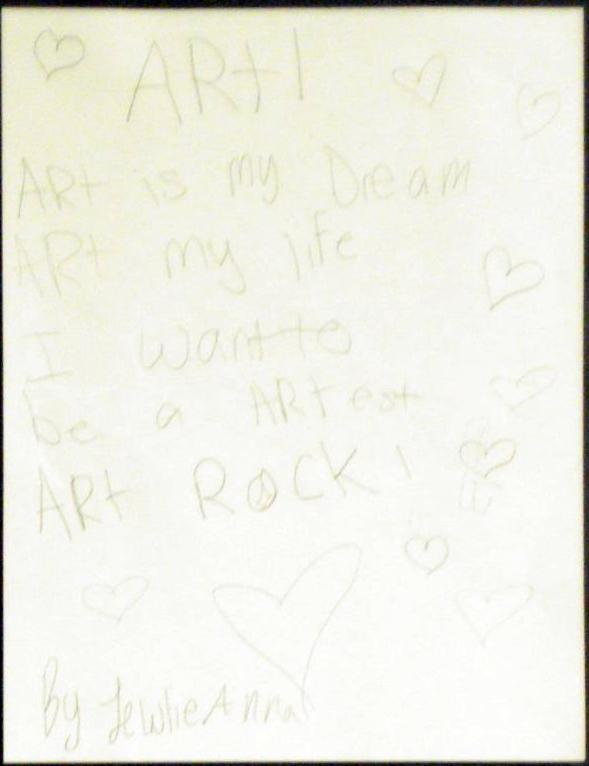 ARt!
ARt is my Dream
ARt my life
I want to
be a ARtest
ARt ROCK!
By JewlieAnna